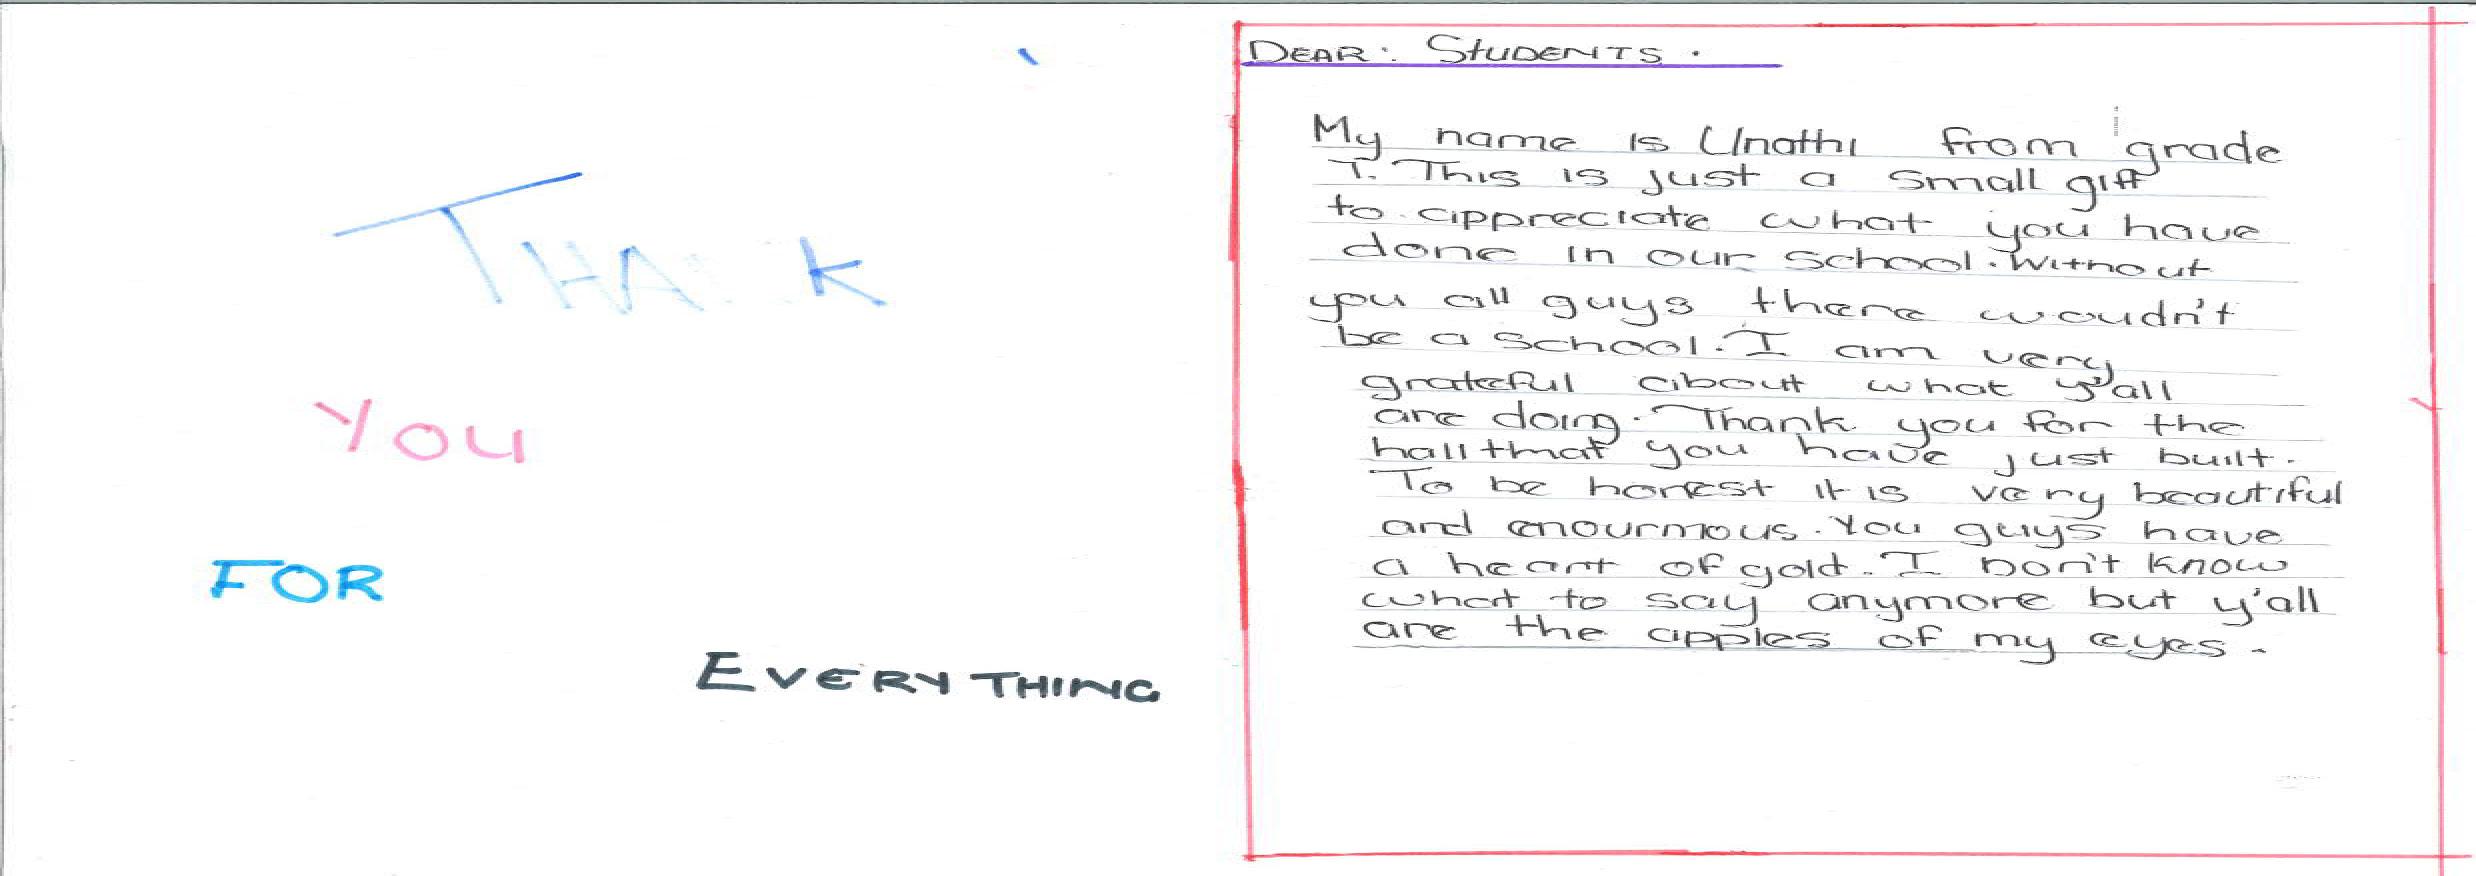 THANK
YOU
FOR
EVERYTHING
DEAR: STUDENTS.
My name is Unathi from grade
7. This is just a small gift
to appreciate what you have
done in our school. Without
you all guys there woudn't
be a school. I am very
grateful about what y'all
are doing. Thank you for the
hall thmat you have just built.
To be honest it is very beautiful
and enourmous. You guys have
a heart of gold. I Don't know
what to say anymore but y'all
are the apples of my eyes.